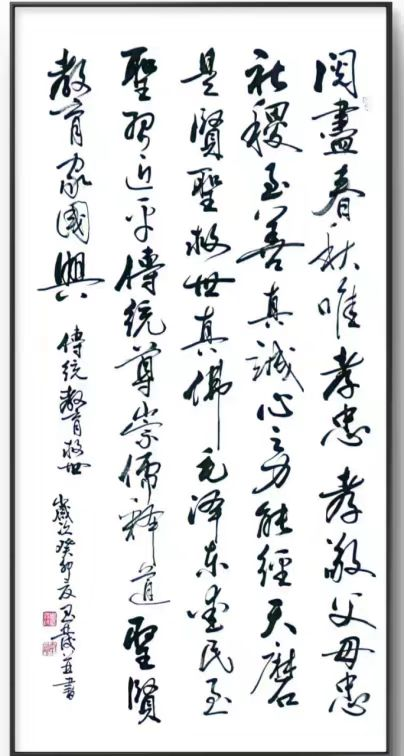 閱盡春秋唯孝忠孝敬父母忠
社稷至善真誠心之力能經天磨
是賢聖救世真佛毛泽东愛民至
聖習近平傳統尊崇儒釋道聖賢
教育家國興
傳統教育救世
歲次癸卯夏
書